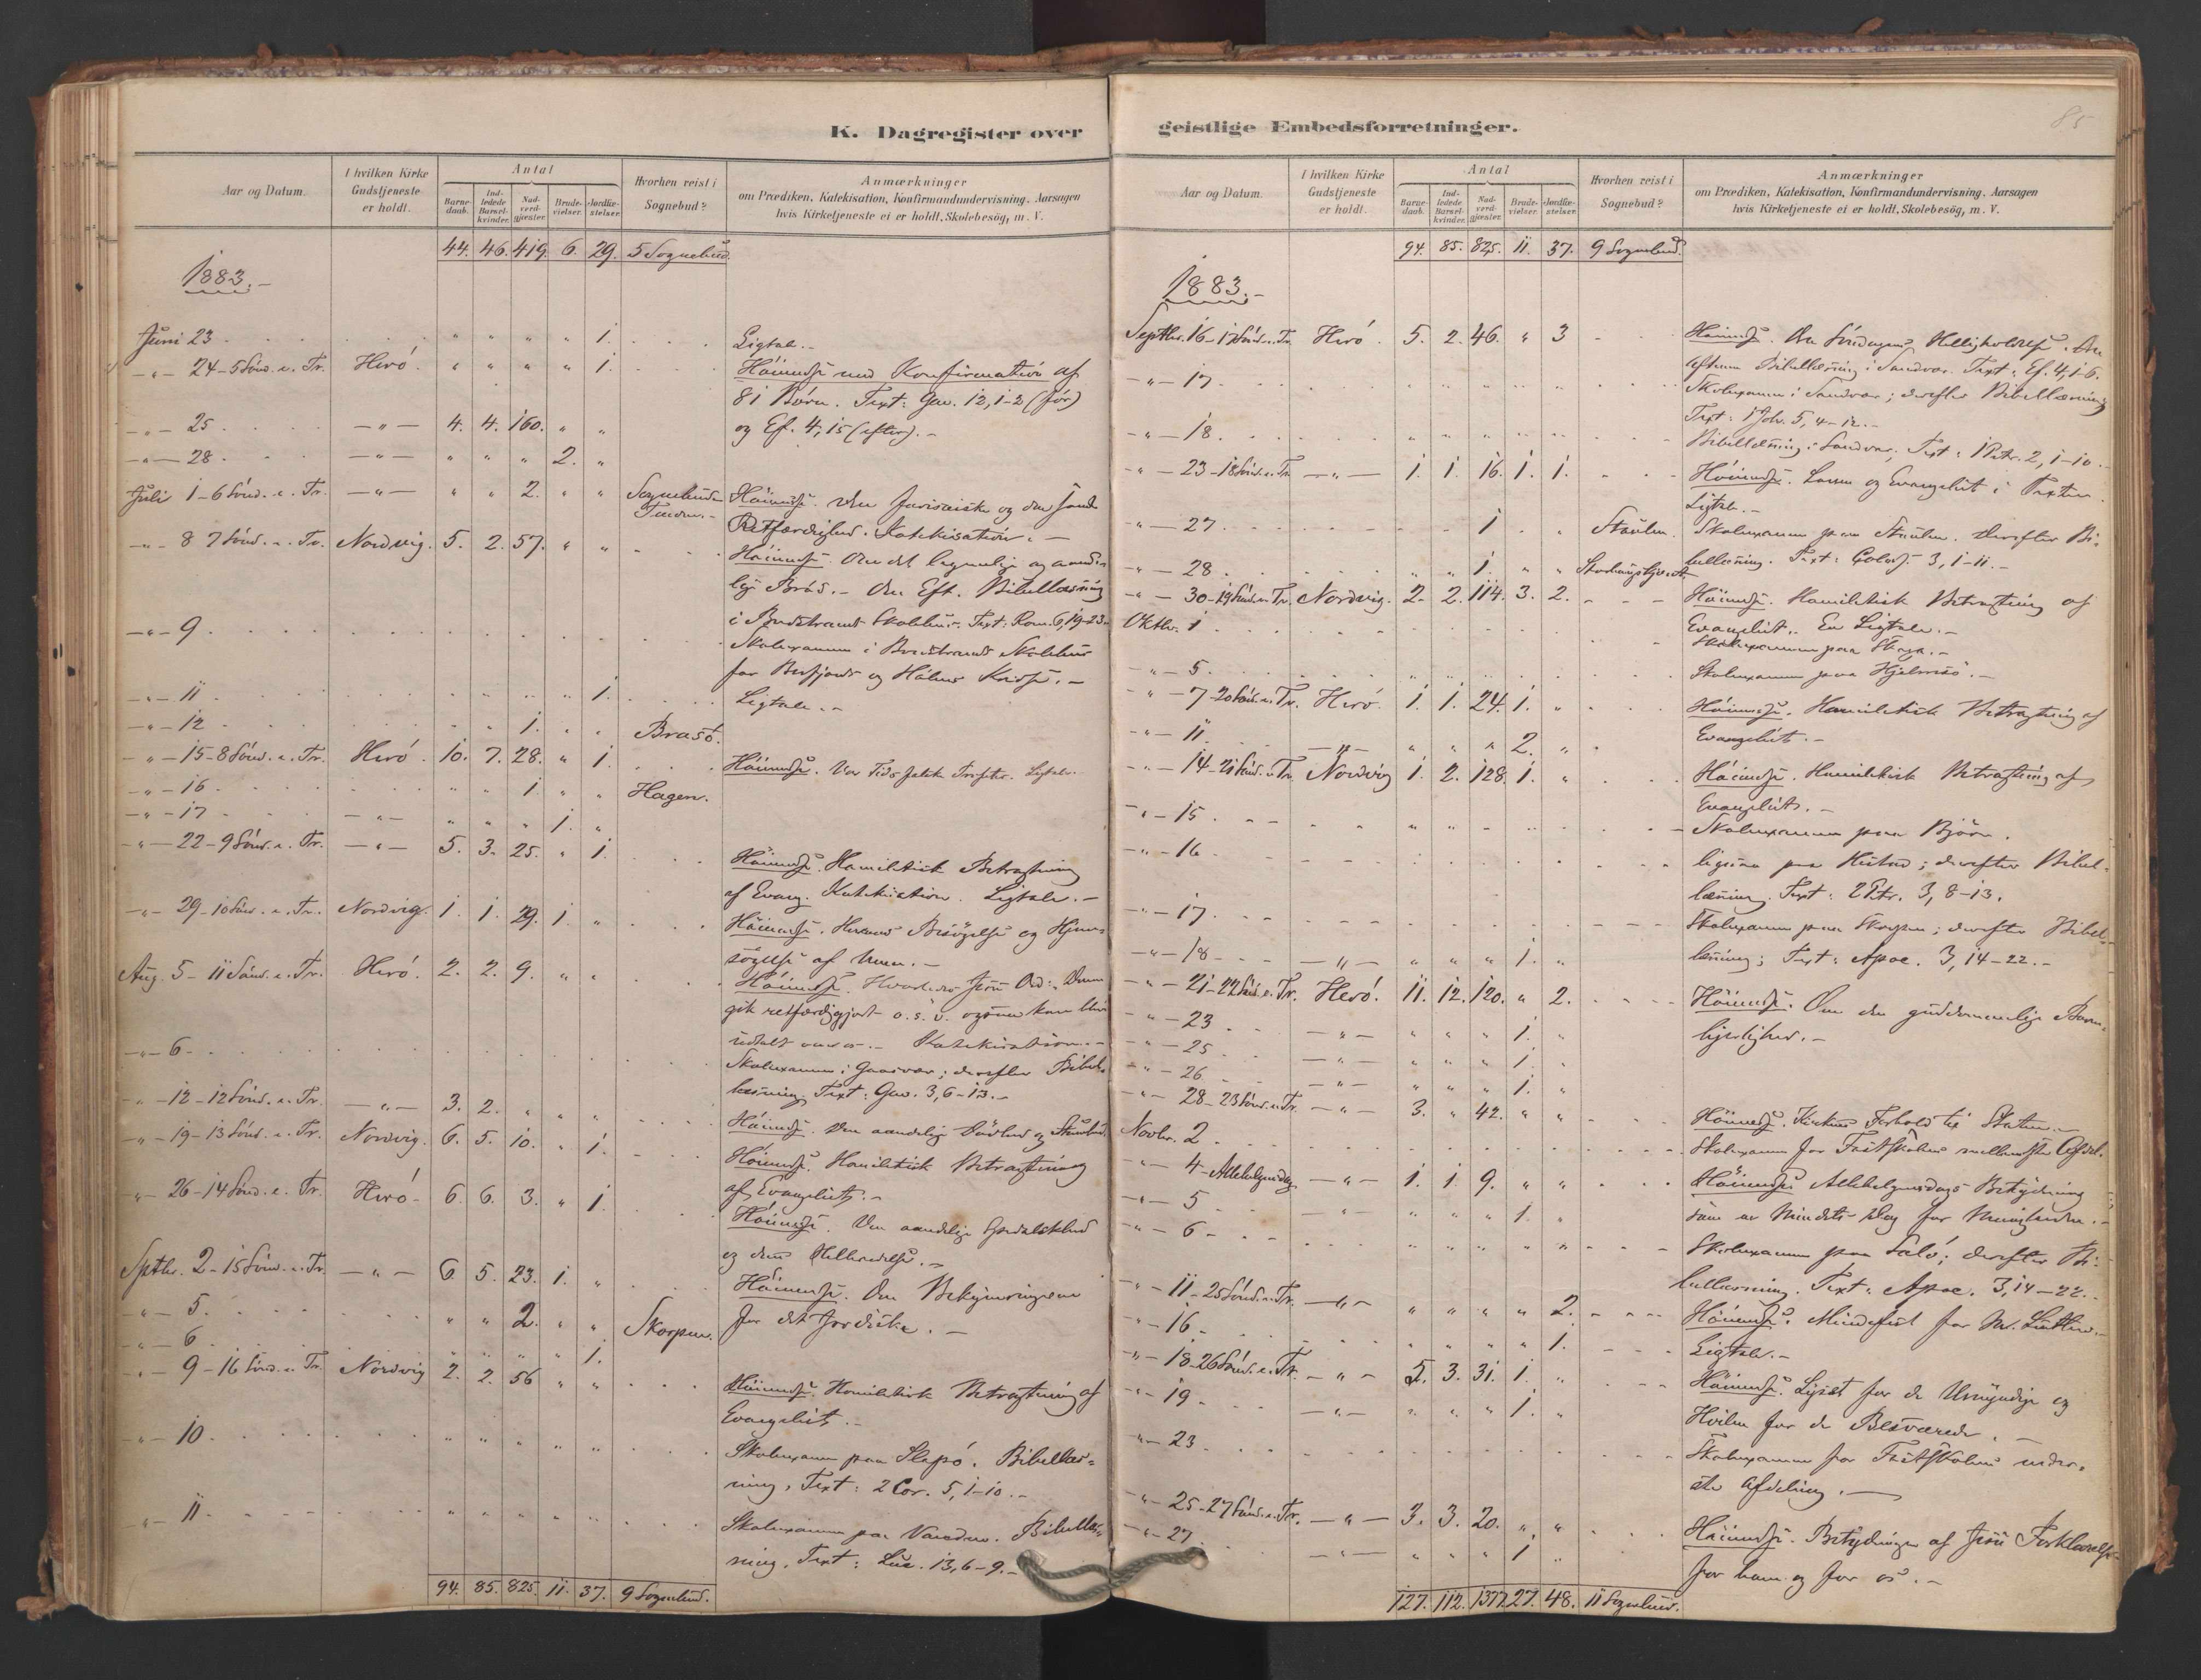 K. Dagregister over
Aar og Datum.
I hvilken Kirke Gudstjeneste er holdt.
Antal
Barnedaab.
Indledede Barselkvinder.
Nadverdgjæster.
Brudevielser.
Jordfæstelser.
Hvorhen reist i Sognebud?
Anmærkninger
om Prædiken, Katekisation, Konfirmandundervisning. Aarsagen
hvis Kirketjeneste ei er holdt, Skolebesög, m. V.
44. 46. 419. 6. 29. 5 Sognebud.
1883.-
Juni 23 " " " " 1. Ligtale.-
-"- 24-5 Sönd. e. Tr. Herö. " " " " 1. Höimesse med Konfirmation af
81 Börn. Text: Gav. 12, 1-2 (för)
-"- 25 -"- 4. 4. 160. " " og Ef. 4, 15 (efter).-
-"- 28 -"- " " " 2. "
Juli 1-6 Sönd. e. Tr. -"- " " 2. " " Höimesse. Den farisæiske og den sande
Retfærdighed. Katekisation.-
-"- 8 7 Sönd. e. Tr. Nordvig. 5. 2. 57. " " Höimesse. Om det legemlige og aandelige
Bröd.- Om Eft. Bibellæsning
-"- 9 i Skolehus. Text: Rom. 6, 19-23.
Skolexamen i Skolehus
for og Kredse.-
-"- 11 1. Ligtale.-
-"- 12 1. " " Brasö.
-"- 15-8 Sönd. e. Tr. Herö. 10. 7. 28. " 1. Höimesse. Vor Tids falske Profeter. Ligtale.
-"- 16 " " 1. " " Hagen.
-"- 17 -"- " " " 1. "
-"- 22-9 Sönd. e. Tr. -"- 5. 3. 25. " 1. Höimesse. Homiletisk Betragtning
af Evang. Katekisation. Ligtale.-
-"- 29-10 Sönd. e. Tr. Nordvig. 1. 1. 29. 1. " Höimesse. Herrens Besögelse og Hjemsögelse
af
Aug. 5-11 Sönd. e. Tr. Herö. 2. 2. 9. " " Höimesse. Jesu Ord: Denne
gik retfærdiggjort o.s.v. ogsaa kan blive
udtalt over os.- Katekisation.-
-"- 6 Skolexamen i Gaasvær; derefter Bibellæsning.
Text: Gav. 3, 6-13.-
-"- 12-12 Sönd. e. Tr. -"- 3. 2. " " " Höimesse. Den aandelige Dövhed og Stumhed.
-"- 19-13 Sönd. e. Tr. Nordvig. 6. 5. 10. " 1. Höimesse. Homiletisk Betragtning
af Evangeliet.-
-"- 26-14 Sönd. e. Tr. Herö 6. 6. 3. " 1. Höimesse. Den aandelige Spedalskhed
og dens Helbredelse.-
Septbr. 2-15 Sönd. e. Tr. -"- 6. 5. 23. 1. " Höimesse. Om Bekymringerne
for det Jordiske.-
-"- 5. " " 2. " " Skorpen.
-"- 6 " " " " 1.
-"- 9-16 Sönd. e. Tr. Nordvig 2. 2. 56 " " Höimesse. Homiletisk Betragtning af
Evangeliet.-
-"- 10 " " " " " Skolexamen paa Slapö. Bibellæsning,
Text: 2 Cor. 5, 1-10.-
-"- 11 " " " " " Skolexamen paa Bibellæsning.
Text: Luc. 13, 6-9.-
94. 85. 825. 11. 37. 9 Sognebud.
85
geistlige Embedsforretninger.
Aar og Datum.
I hvilken Kirke Gudstjeneste er holdt.
Antal
Barnedaab.
Indledede Barselkvinder.
Nadverdgjæster.
Brudevielser.
Jordfæstelser.
Hvorhen reist i Sognebud?
Anmærkninger
om Prædiken, Katekisation, Konfirmandundervisning. Aarsagen
hvis Kirketjeneste ei er holdt, Skolebesög, m. V.
94. 85. 825. 11. 37. 9 Sognebud.
1883.-
Septbr. 16-17 Sönd. e. Tr. Herö. 5. 2. 46. " 3 Höimesse. Om Söndagens Helligholdelse. Om
Bibellæsning i Sandvær. Text: Ef. 4, 1-6.
-"- 17 Skolexamen i Sandvær; derefter Bibellæsning
Text: 1 Joh. 5, 4-12.-
-"- 18. Bibellæsning i Sandvær; Text: 1 Petr. 2, 1-10.
-"- 23-18 Sönd. e. Tr. -"- 1. 1. 16. 1. 1. Höimesse. Loven og Evangeliet i Texten.
Ligtale.-
-"- 27 1 " " Staulen. Skolexamen paa Staulen. Derefter Bibellæsning.
Text: Colos. 3, 1-11.-
-"- 28 " " 1. " "
-"- 30-19 Sönd. e. Tr. Nordvig. 2. 2. 114. 3. 2. Höimesse. Homiletisk Betragtning af
Evangeliet. En Ligtale.-
Oktbr. 1 Skolexamen paa
-"- 5 Skolexamen paa Hjelmsö.-
-"- 7-20 Sönd. e. Tr. Herö. 1. 1. 24. 1. " Höimesse. Homiletisk Betragtning af
Evangeliet.-
-"- 11 -"- " " " 2. "
-"- 14-21 Sönd. e. Tr. Nordvig 1. 2. 128. 1. " Höimesse. Homiletisk Betragtning af
Evangeliet.-
-"- 15 Skolexamen paa Björn.
-"- 16 ligesaa paa ; derefter Bibellæsning.
Text: 2 Petr. 3, 8-13.
-"- 17. Skolexamen paa Skorpen; derefter Bibellæsning;
Text: Apoc. 3, 14-22.-
-"- 18 -"- " " " 1. "
-"- 21-22 Sönd. e. Tr. Herö. 11. 12. 120. " 2. Höimesse. Om den guddommelige Barmhjertighed.-
-"- 23 -"- " " " 1. "
-"- 25 -"- " " " 1. "
-"- 26 -"- " " " 1. "
-"- 28-23 Sönd. e. Tr. -"- 3. " 42. " " Höimesse. Kirkens Forhold til Staten.-
Novbr. 2 Skolexamen for Fastskolens mellemste Afdel.
-"- 4-Allehelgensdag -"- 1. 1. 9. " " Höimesse. Allehelgensdags Betydning
som en Mindets Dag for Menigheden.-
-"- 5 -"- " " " 1. "
-"- 6 " " " " " Skolexamen paa ; derefter Bibellæsning.
Text: Apoc. 3, 14-22.-
-"- 11-25 Sönd. e. Tr. -"- " " " " 2. Höimesse. Mindefest for M. Luther.-
-"- 16 " " " " 1. Ligtale.-
-"- 18-26 Sönd. e. Tr. -"- 5. 3. 31. 1. " Höimesse. Lyset for de Umyndige og
Hvilen for de Besværede.-
-"- 19 -"- " " " 1. "
-"- 23 Skolexamen for Fastskolens nederste
Afdeling.-
-"- 25-27 Sönd. e. Tr. -"- 3. 3. 20. " " Höimesse. Betydningen af Jesu Forklarelse
for ham og for os.-
-"- 27 -"- " " " 1 "
127. 112. 1377. 27. 48. 11 Sognebud.